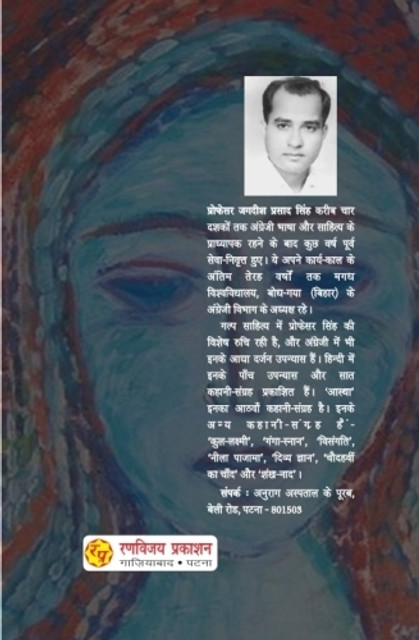 प्रोफेसर जगदीश प्रसाद सिंह करीब चार
दशकों तक अंग्रेजी भाषा और साहित्य के
प्राध्यापक रहने के बाद कुछ वर्ष पूर्व
सेवा-निवृत्त हुए। ये अपने कार्य-काल के
अंतिम तेरह वर्षों तक मगध
विश्वविद्यालय, बोध-गया (बिहार) के
अंग्रेजी विभाग के अध्यक्ष रहे।
गल्प साहित्य में प्रोफेसर सिंह की
विशेष रुचि रही है, और अंग्रेजी में भी
इनके आधा दर्जन उपन्यास हैं। हिन्दी में
इनके पाँच उपन्यास और सात
कहानी-संग्रह प्रकाशित हैं। 'आस्था'
इनका आठवाँ कहानी-संग्रह है। इनके
अन्य कहानी-संग्रह हैं-
'कुल-लक्ष्मी', 'गंगा-स्नान', 'विसंगति',
'नीला पाजामा', 'दिव्य ज्ञान', 'चौदहवीं
का चाँद' और 'शंख-नाद'।
संपर्क : अनुराग अस्पताल के पूरब,
बेली रोड, पटना - 801503
रप्र
रणविजय प्रकाशन
गाज़ियाबाद • पटना